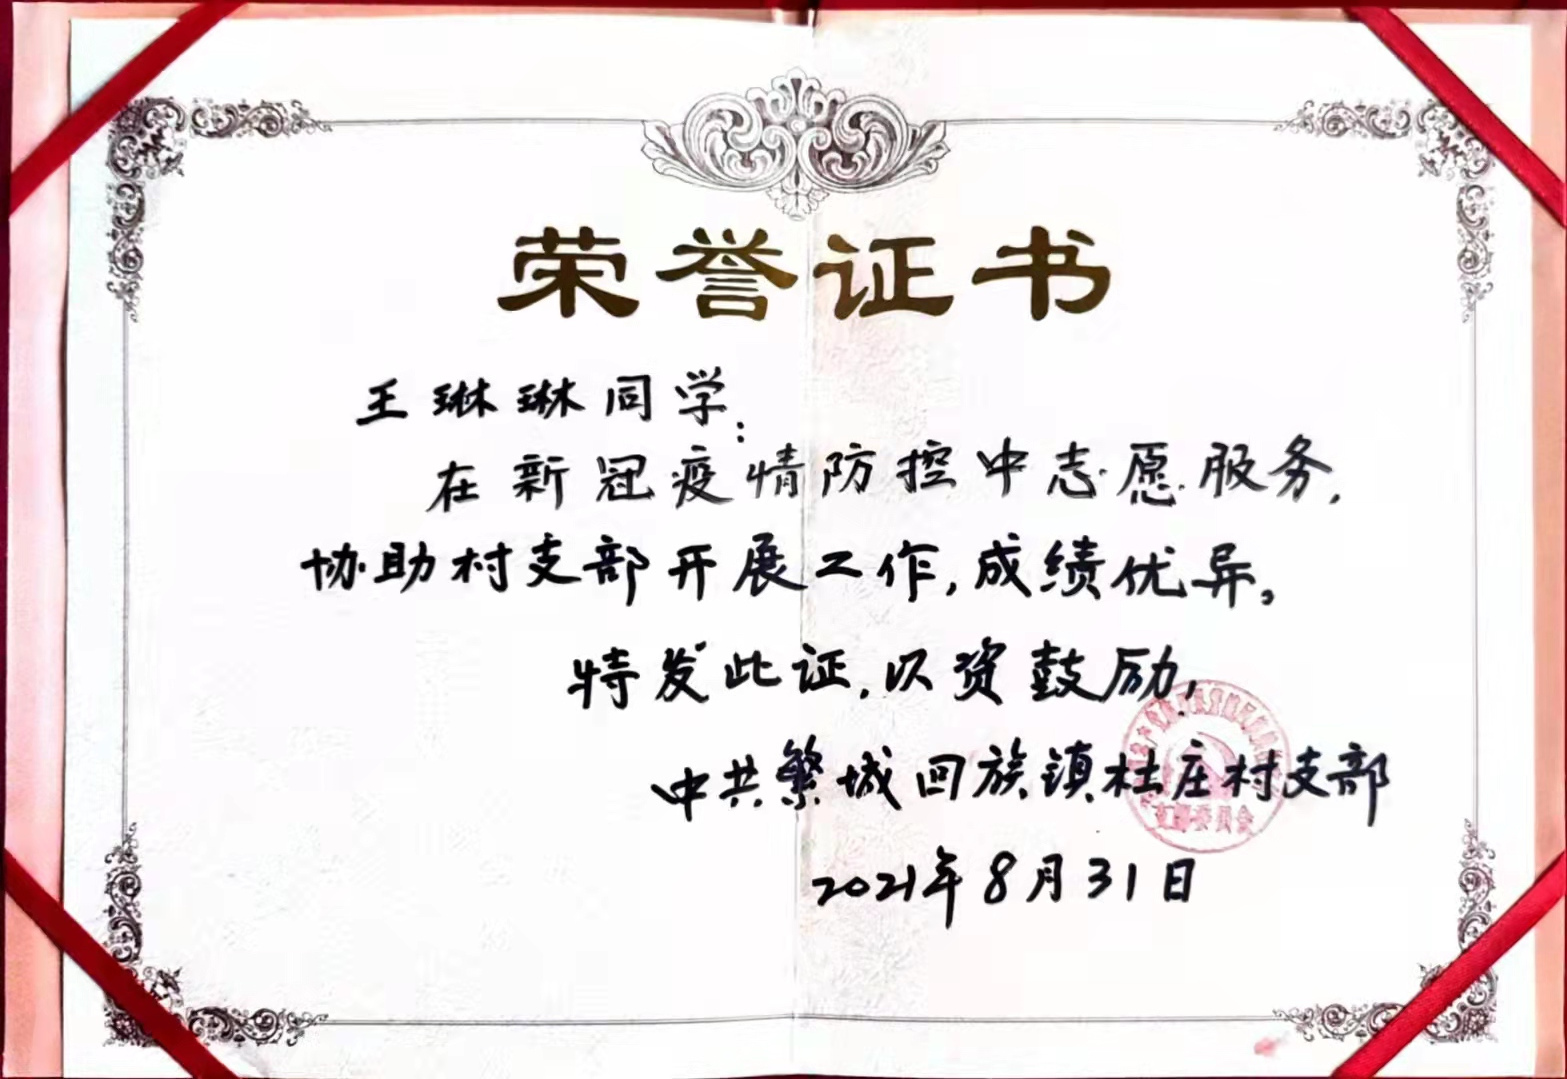 荣誉证书
王琳琳同学：
在新冠疫情防控中志愿服务，
协助村支部开展工作，成绩优异。
特发此证，以资鼓励，
中共繁城回族镇杜庄村支部
2021年8月31日